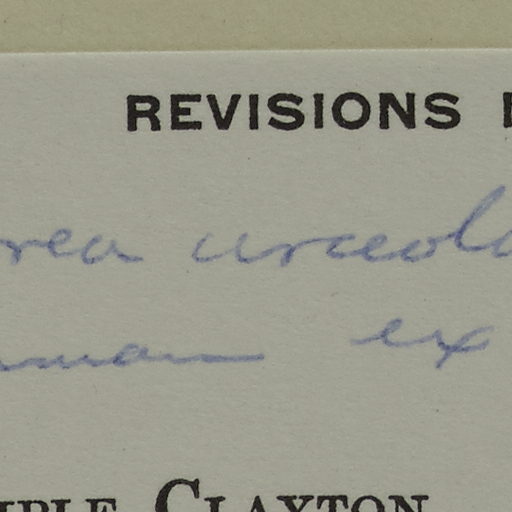 REVISIONS
rea urceola
ex
MPLE CLAXTON